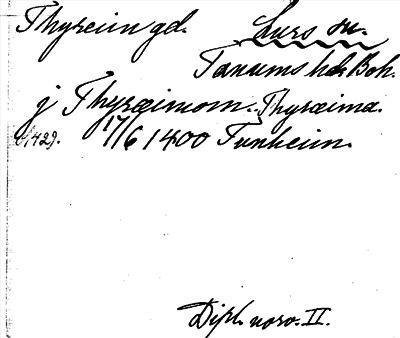 Thyreim gd. Lurs sn.
Tanums hd. Boh.
j Thyræimom. Thyræima.
17/6 1400 Tunheim.
Dipl. norv. II.